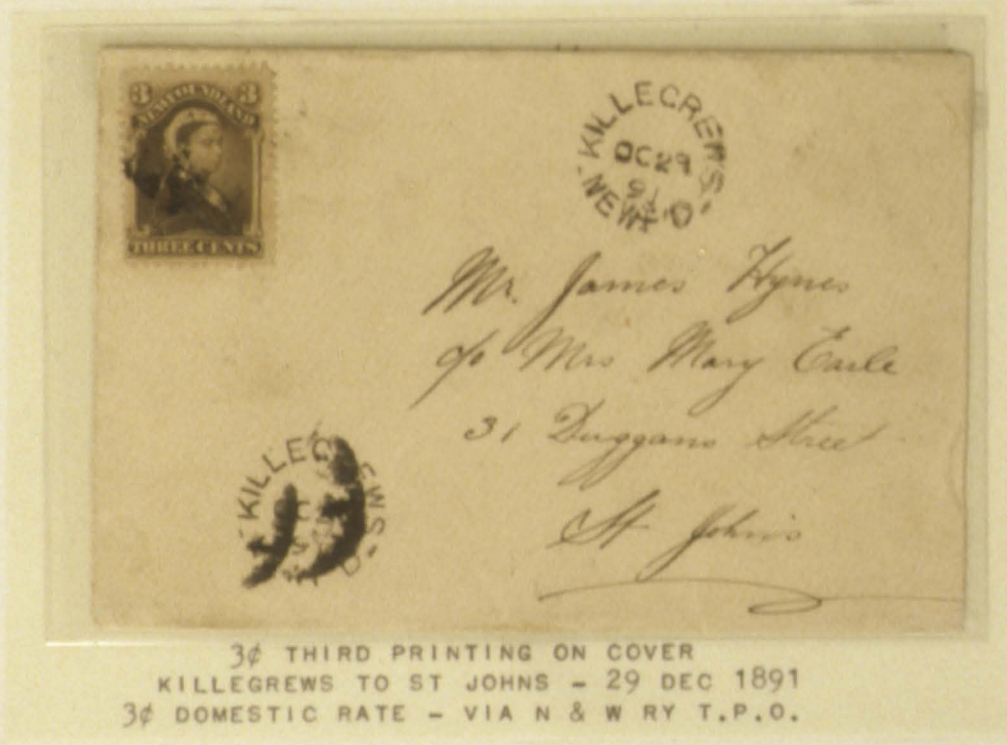 3 3
NEWFOUNDLAND
THREE CENTS
KILLEGREWS
OC 29
91
NEWF'D
Mr. James Hynes
c/o Mrs Mary Earle
31 Duggans Street
St John's
KILLEGREWS
3¢ THIRD PRINTING ON COVER
KILLEGREWS TO ST JOHNS – 29 DEC 1891
3¢ DOMESTIC RATE – VIA N & W RY T.P.O.